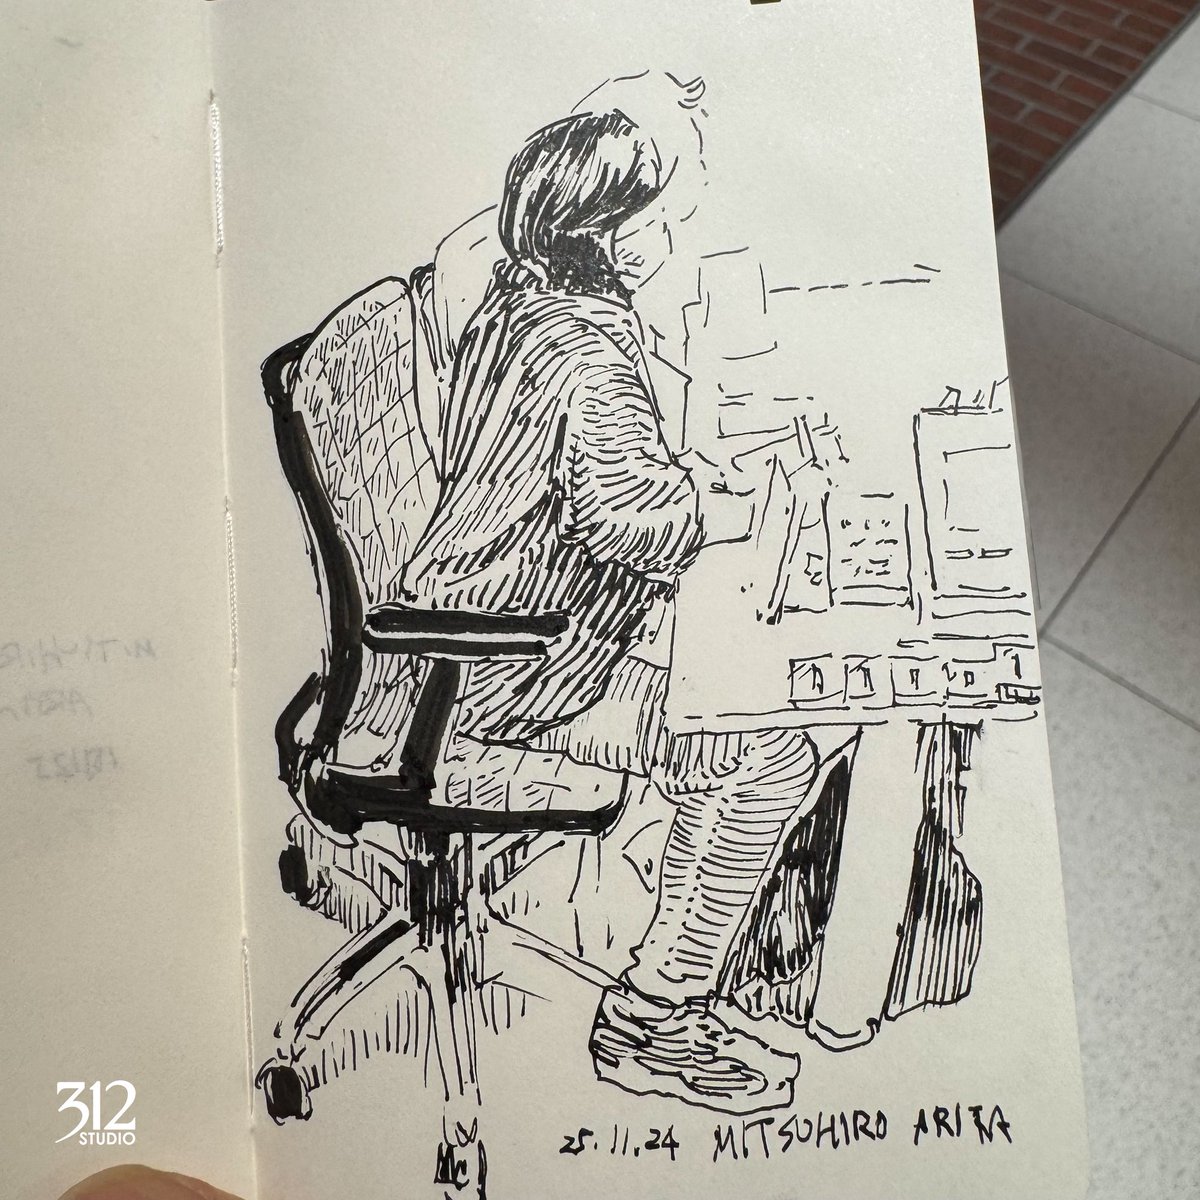 25.11.24 MITSUHIRO ARITA
312
STUDIO